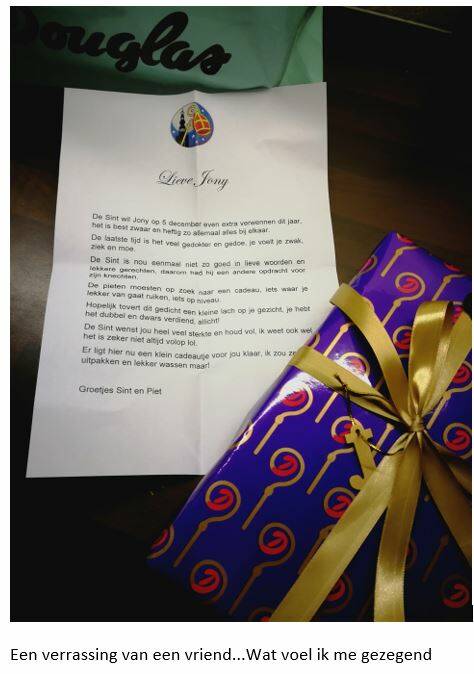 Douglas
Lieve Jony
De Sint wil Jony op 5 december even extra verwennen dit jaar,
het is best zwaar en heftig zo allemaal alles bij elkaar.
De laatste tijd is het veel gedokter en gedoe, je voelt je zwak,
ziek en moe.
De Sint is nou eenmaal niet zo goed in lieve woorden en
lekkere gerechten, daarom had hij een andere opdracht voor
zijn knechten.
De pieten moesten op zoek naar een cadeau, iets waar je
lekker van gaat ruiken, iets op niveau.
Hopelijk tovert dit gedicht een kleine lach op je gezicht, je hebt
het dubbel en dwars verdiend, allicht!
De Sint wenst jou heel veel sterkte en houd vol, ik weet ook wel
het is zeker niet altijd volop lol.
Er ligt hier nu een klein cadeautje voor jou klaar, ik zou
uitpakken en lekker wassen maar!
Groetjes Sint en Piet
Een verrassing van een vriend...Wat voel ik me gezegend